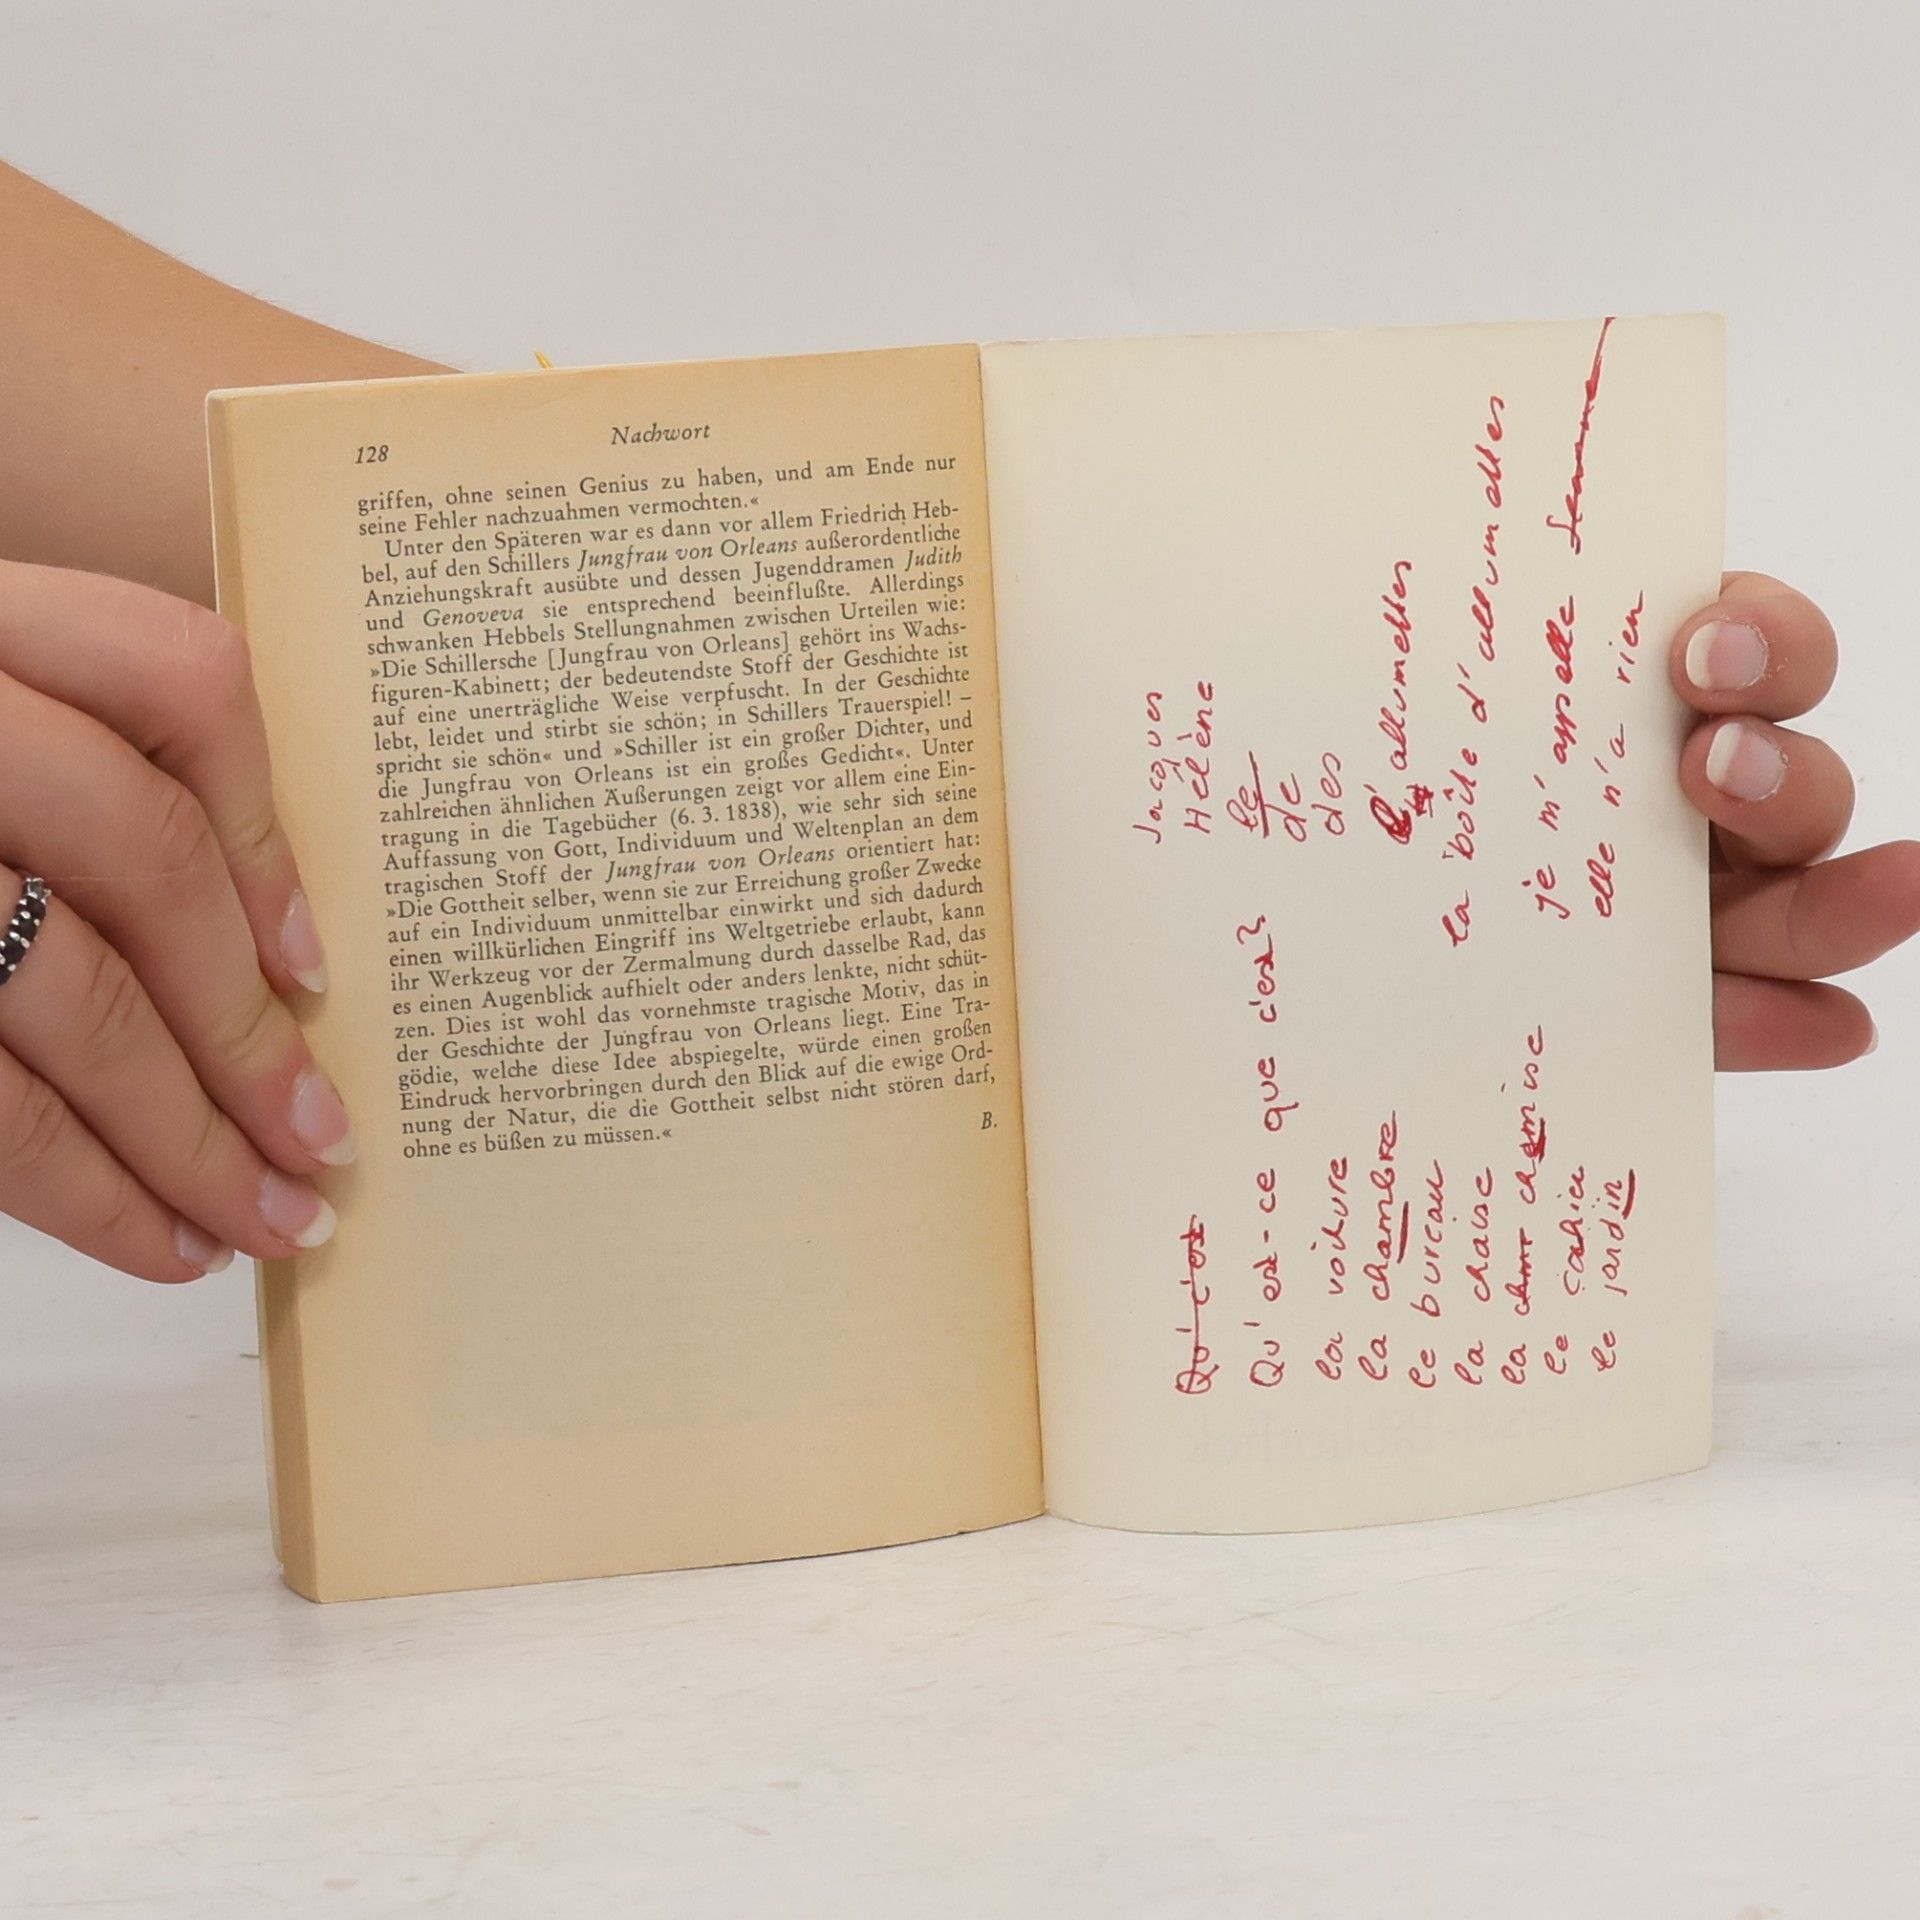 128
Nachwort
griffen, ohne seinen Genius zu haben, und am Ende nur
seine Fehler nachzuahmen vermochten.«
Unter den Späteren war es dann vor allem Friedrich Heb-
bel, auf den Schillers Jungfrau von Orleans außerordentliche
Anziehungskraft ausübte und dessen Jugenddramen Judith
und Genoveva sie entsprechend beeinflußte. Allerdings
schwanken Hebbels Stellungnahmen zwischen Urteilen wie:
»Die Schillersche [Jungfrau von Orleans] gehört ins Wachs-
figuren-Kabinett; der bedeutendste Stoff der Geschichte ist
auf eine unerträgliche Weise verpfuscht. In der Geschichte
lebt, leidet und stirbt sie schön; in Schillers Trauerspiel! –
spricht sie schön« und »Schiller ist ein großer Dichter, und
die Jungfrau von Orleans ist ein großes Gedicht«. Unter
zahlreichen ähnlichen Äußerungen zeigt vor allem eine Ein-
tragung in die Tagebücher (6. 3. 1838), wie sehr sich seine
Auffassung von Gott, Individuum und Weltenplan an dem
tragischen Stoff der Jungfrau von Orleans orientiert hat:
»Die Gottheit selber, wenn sie zur Erreichung großer Zwecke
auf ein Individuum unmittelbar einwirkt und sich dadurch
einen willkürlichen Eingriff ins Weltgetriebe erlaubt, kann
ihr Werkzeug vor der Zermalmung durch dasselbe Rad, das
es einen Augenblick aufhielt oder anders lenkte, nicht schüt-
zen. Dies ist wohl das vornehmste tragische Motiv, das in
der Geschichte der Jungfrau von Orleans liegt. Eine Tra-
gödie, welche diese Idee abspiegelte, würde einen großen
Eindruck hervorbringen durch den Blick auf die ewige Ord-
nung der Natur, die die Gottheit selbst nicht stören darf,
ohne es büßen zu müssen.«
B.
Qu' c'est
Qu' est-ce que c'est?
la voiture
la chambre
le bureau
la chaise
la chemise
le cahier
le jardin
Jacques
Hélène
le
de
des
l' allumettes
la boîte d'allumettes
je m'appelle
elle n'a rien